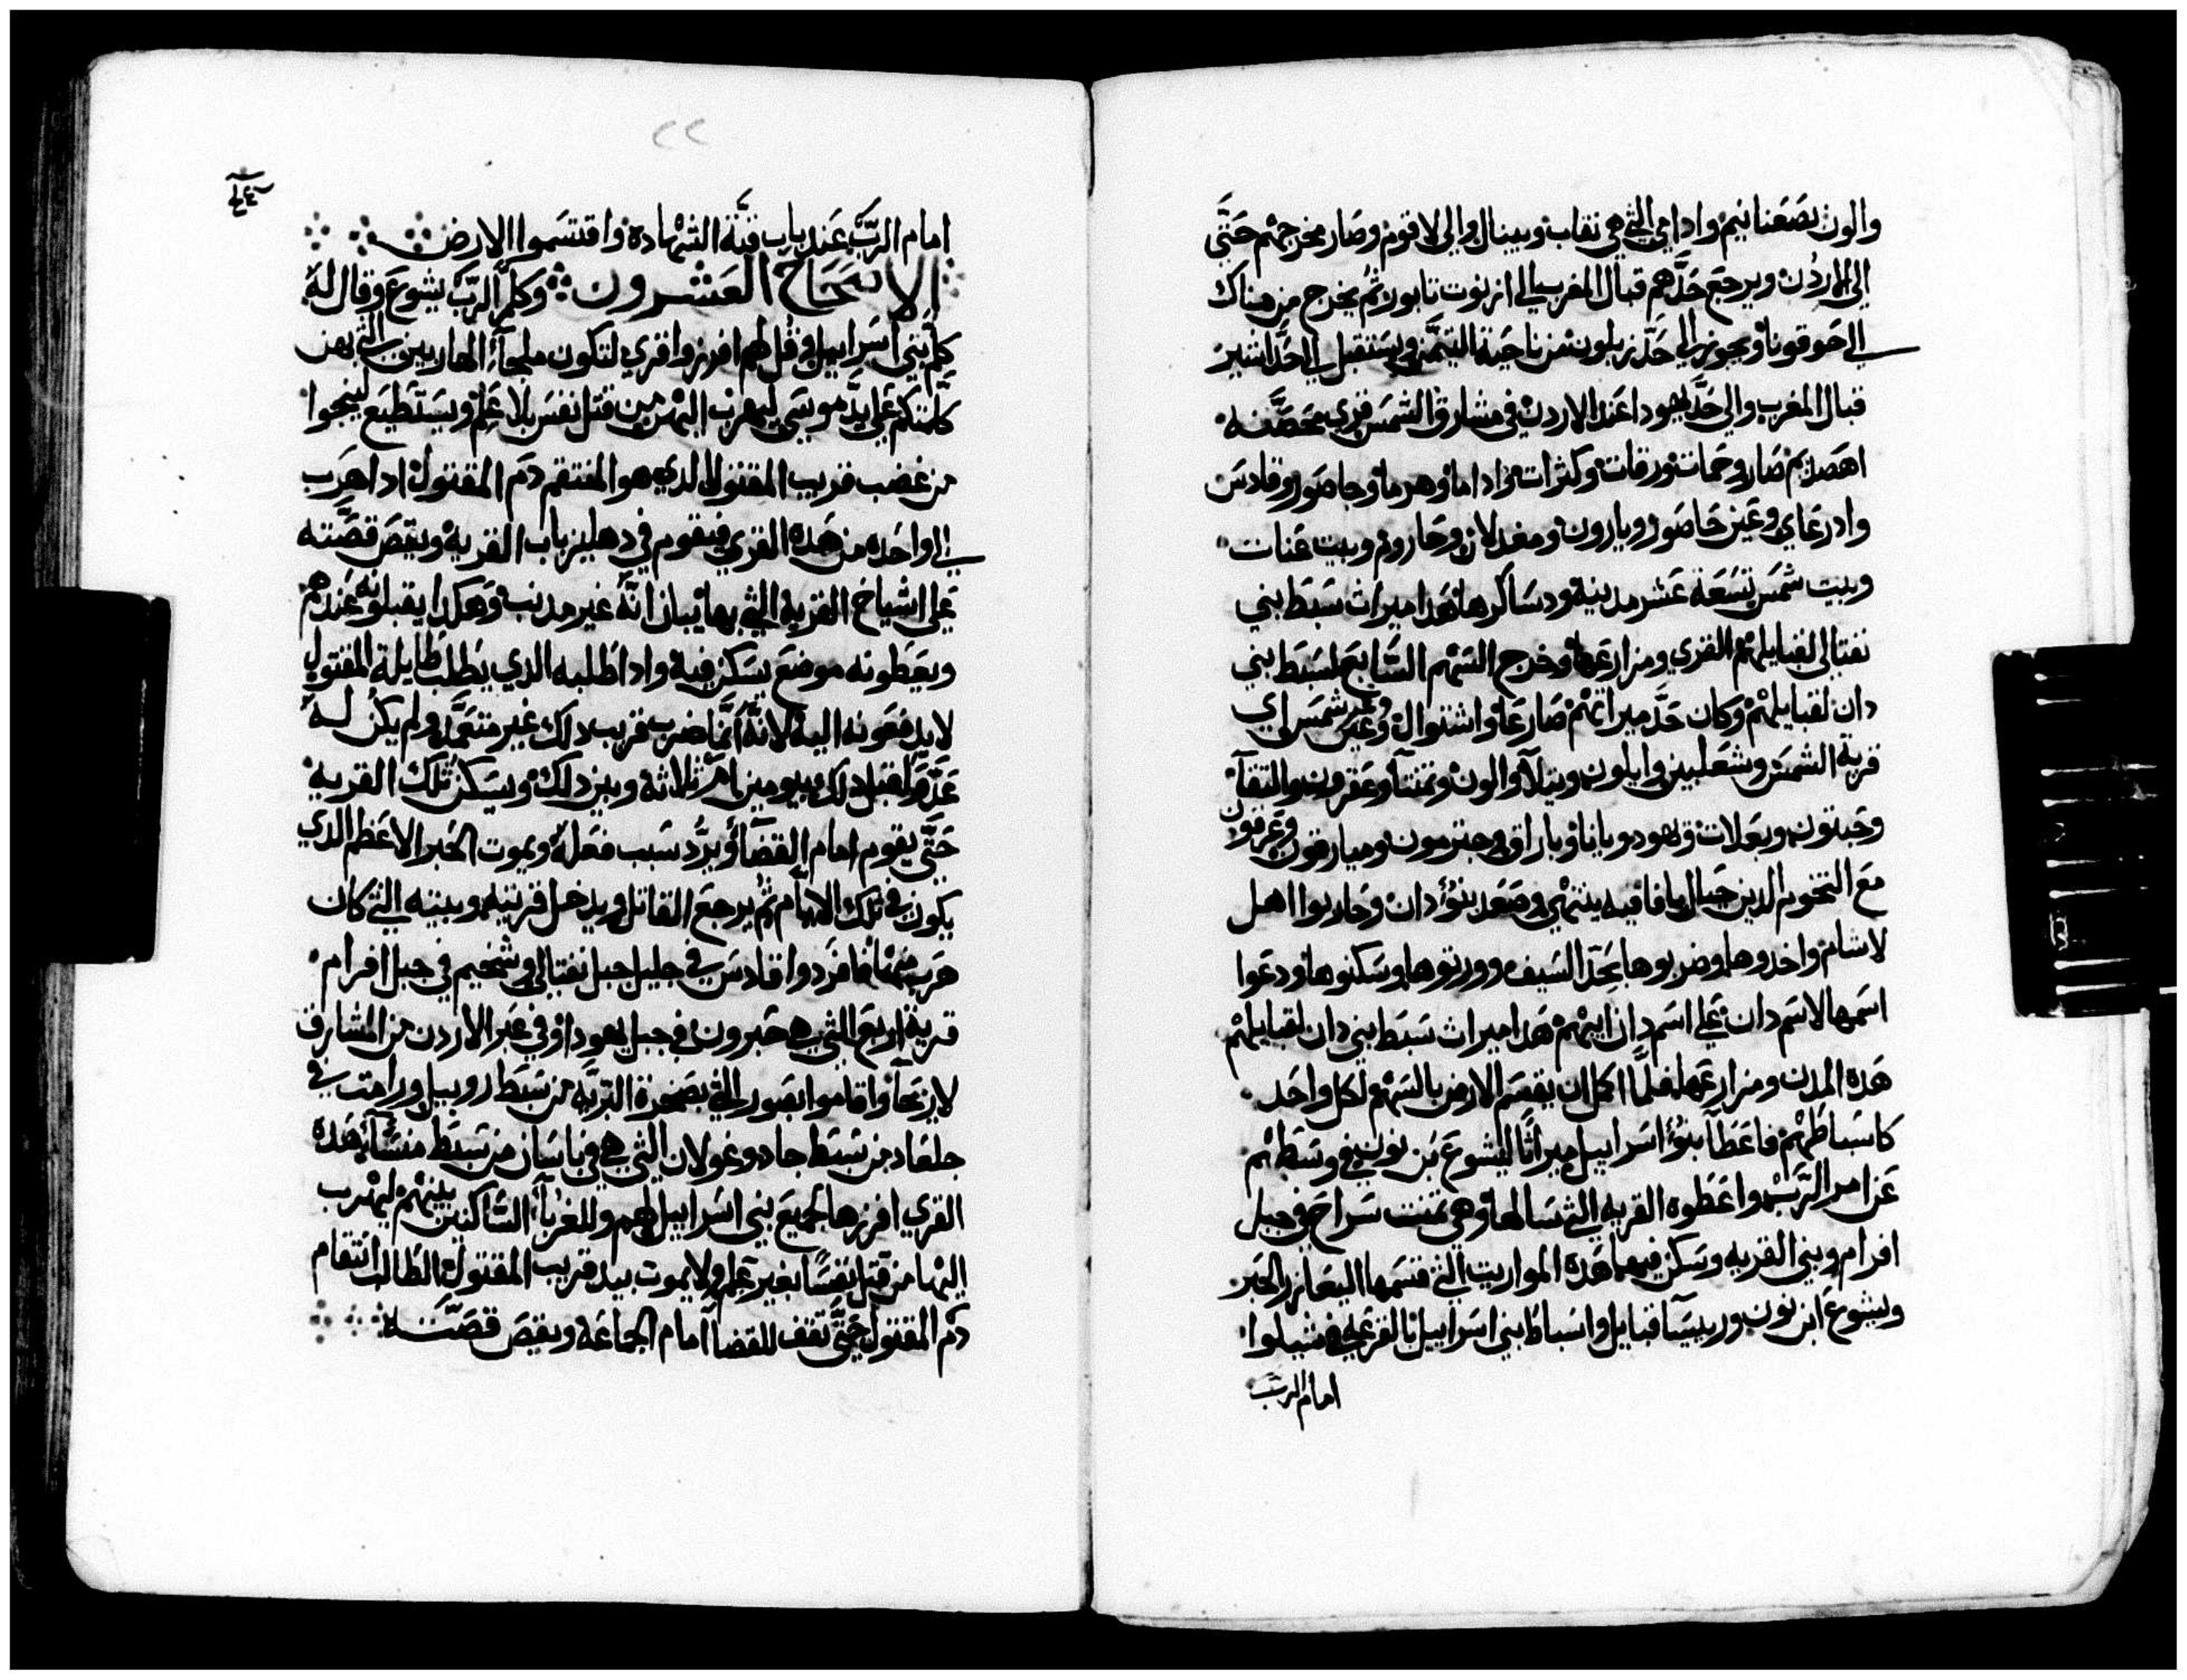 والون بصعنانيم وادامي التي هي نقاب وبينال والي لاقوم وصار مخرجهم حتي
الي الاردن ويرجع حدهم قبال المغرب الي ازنوت تابور ثم يخرج من هناك
الي احوقونا ويجوز الي حد زبلون من ناحية التيمن ويستقبل الي حد اشير
قبال المغرب والي حد يهودا عند الاردن في مشارق الشمس قري محصنه
اهصديم صار وحمات ورقات وكنرات واداما وهرما وحاصور وقادس
وادرعاي وعين حاصور ويارون ومغدلان وحاروم وبيت عنات
وبيت شمس تسعة عشر مدينه ودساكرها هدا ميرات سبط بني
نفتالي لقبايلهم القري ومزارعها وخرج السهم السابع لسبط بني
دان لقبايلهم وكان حد ميراتهم صارعا واشتوال وعير شمس اي
قرية الشمس وشعلبين وايلون ويتلا والون وتمنتا وعقرون والتقا
وجبتون وبعلات ويهود وباناوباراق وجترمون وميارقون وعرقون
مع التخوم الدين حيال يافا فيه ينتهي وصعد بنو دان وحاربوا اهل
لاشام واخدوها وضربوها بحد السيف وورتوها وسكنوها ودعوا
اسمها لاشم دان علي اسم دان ابيهم هدا ميرات سبط بني دان لقبايلهم
هده المدن ومزارعها فلما اكمل ان يقسم الارض بالسهم لكل واحد
كاسباطهم فاعطا بنو اسراييل ميراثا ليشوع بن نون في وسطهم
عن امر الرب واعطوه القريه التي سالها وهي تمنت سراح في جبل
افرام وبني القريه وسكن فيها هده المواريت التي قسمها اليعازر الحبر
ويشوع ابن نون وريسا قبايل واسباط بني اسراييل بالقرعه في شيلوا
امام الرب
امام الرب عند باب قبة الشهاده واقتسموا الارض
الاصحاح العشرون وكلم الرب يشوع وقال له
كلم بني اسراييل وقل لهم افرزوا قري لتكون ملجاء الهاربين التي بهن
كلمتكم علي يد موسي ليهرب اليهن من قتل نفس بلا علم ويستطيع لينجوا
من غضب قريب المقتول الدي هو المنتقم دم المقتول ادا هرب
الي واحده من هده القري فيقوم في دهليز باب القريه ويقص قصته
علي اشياخ القرية التي بها بيان انه غير مدنب وهكدا يقبلونه عندهم
ويعطونه موضع يسكن فيه وادا طلبه الدي يطلب طايلة المقتول
لا يدفعونه اليه لانه انما ضرب قريب دلك غير متعمد ولم يكن له
عدوا قبل دلك بيومين او تلاتة وبين دلك ويسكن تلك القريه
حتي يقوم امام القضا ويرد سبب فعله ويموت الحبر الاعظم الدي
يكون في تلك الايام ثم يرجع القاتل ويدخل قريته وبيته التي كان
هرب منها فافردوا قادس في جليل جبل نفتالي وشخيم في جبل افرام
قرية اربع التي هي حبرون في جبل يهودا وفي عبر الاردن من المشارق
لاريحا واقاموا بصور التي بصحرة البريه من سبط روبيل ورامت في
جلعاد من سبط جاد وغولان التي هي في باسان من سبط منسا هده
القري افرزها لجميع بني اسراييل لهم وللغربا الساكنين بينهم ليهرب
اليها من قتل نفسا بغير علم ولا يموت بيد قريب المقتول الطالب انتقام
دم المقتول حتي تقف للقضا امام الجماعة ويقص قصته